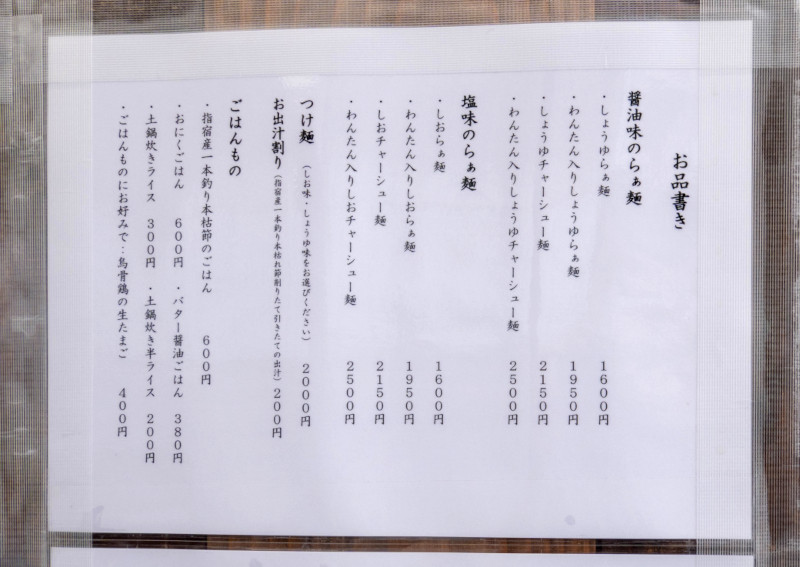 お品書き
醤油味のらぁ麺
・しょうゆらぁ麺 1600円
・わんたん入りしょうゆらぁ麺 1950円
・しょうゆチャーシュー麺 2150円
・わんたん入りしょうゆチャーシュー麺 2500円
塩味のらぁ麺
・しおらぁ麺 1600円
・わんたん入りしおらぁ麺 1950円
・しおチャーシュー麺 2150円
・わんたん入りしおチャーシュー麺 2500円
つけ麺 (しお味・しょうゆ味をお選びください) 2000円
お出汁割り(指宿産一本釣り本枯れ節削りたて引きたての出汁) 200円
ごはんもの
・指宿産一本釣り本枯節のごはん 600円
・おにくごはん 600円 ・バター醤油ごはん 380円
・土鍋炊きライス 300円 ・土鍋炊き半ライス 200円
・ごはんものにお好みで…烏骨鶏の生たまご 400円